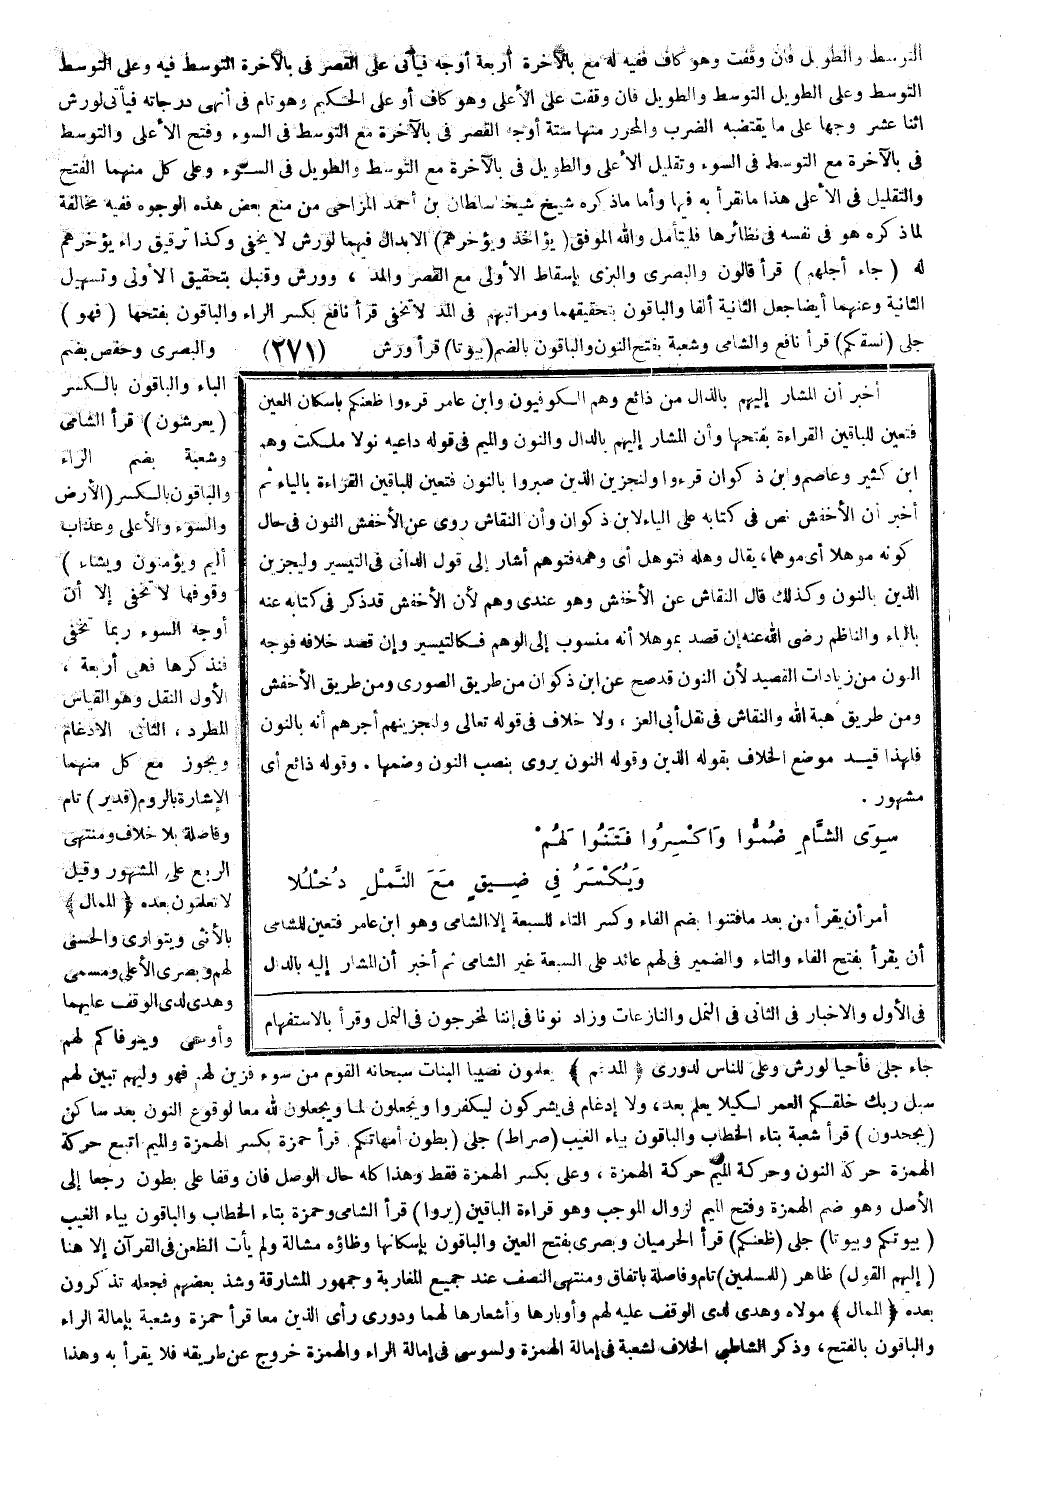 التوسط والطويل فان وقفت وهو كاف ففيه له مع بالآخرة أربعة أوجه فيأتى على القصر فى بالآخرة التوسط فيه وعلى التوسط
التوسط وعلى الطويل التوسط والطويل فان وقفت على الأعلى وهو كاف أو على الحكيم وهو تام فى أنهى درجاته فيأتى لورش
اثنا عشر وجها على ما يقتضيه الضرب والمحرر منها ستة أوجه القصر فى بالآخرة مع التوسط فى السوء وفتح الأعلى والتوسط
فى بالآخرة مع التوسط فى السوء وتقليل الأعلى والطويل فى بالآخرة مع التوسط والطويل فى السوء وعلى كل منهما الفتح
والتقليل فى الأعلى هذا ما نقرأ به فيها وأما ماذكره شيخ شيخنا سلطان بن أحمد المزاحى من منع بعض هذه الوجوه ففيه مخالفة
لما ذكره هو فى نفسه فى نظائرها فليتأمل والله الموفق (يؤاخذ ويؤخرهم) الابدال فيهما لورش لا يخفى وكذا ترقيق راء يؤخرهم
له (جاء أجلهم) قرأ قالون والبصرى والبزى بإسقاط الأولى مع القصر والمد ، وورش وقنبل بتحقيق الأولى وتسهيل
الثانية وعنهما أيضا جعل الثانية ألفا والباقون بتحقيقهما ومراتبهم فى المد لا تخفى قرأ نافع بكسر الراء والباقون بفتحها (فهو)
جلى (نسقيكم) قرأ نافع والشامى وشعبة بفتح النون والباقون بالضم (بيوتا) قرأ ورش (٢٧١) والبصرى وحفص بضم
الباء والباقون بالكسر
(يعرشون) قرأ الشامى
وشعبة بضم الراء
والباقون بالكسر (الأرض
والسوء والأعلى وعذاب
أليم ويؤمنون ويشاء)
وقوفها لا تخفى إلا أن
أوجه السوء ربما تخفى
فنذكرها فهى أربعة ،
الأول النقل وهو القياس
المطرد ، الثانى الادغام
ويجوز مع كل منهما
الإشارة بالروم (قدير) تام
وفاصلة بلا خلاف ومنتهى
الربع على المشهور وقيل
لا تعلمون بعده ﴿الممال﴾
بالأنثى ويتوارى والحسنى
لهم وبصرى الأعلى ومسمى
وهدى لدى الوقف عليهما
وأوحى ويتوفاكم لهم
أخبر أن المشار إليهم بالذال من ذائع وهم الكوفيون وابن عامر قرءوا ظعنكم باسكان العين
فتعين للباقين القراءة بفتحها وأن المشار إليهم بالدال والنون والميم فى قوله داعيه نولا ملكت وهم
ابن كثير وعاصم وابن ذكوان قرءوا ولنجزين الذين صبروا بالنون فتعين للباقين القراءة بالياء ثم
أخبر أن الأخفش نص فى كتابه على الياء لابن ذكوان وأن النقاش روى عن الأخفش النون فى حال
كونه موهلا أى موهما ، يقال وهله فتوهل أى وهمه فتوهم أشار إلى قول الدانى فى التيسير وليجزين
الذين بالنون وكذلك قال النقاش عن الأخفش وهو عندى وهم لأن الأخفش قد ذكر فى كتابه عنه
بالياء والناظم رضى الله عنه إن قصد بموهلا أنه منسوب إلى الوهم فكالتيسير وإن قصد خلافه فوجه
النون من زيادات القصيد لأن النون قد صح عن ابن ذكوان من طريق الصورى ومن طريق الأخفش
ومن طريق هبة الله والنقاش فى نقل أبى العز ، ولا خلاف فى قوله تعالى ولنجزينهم أجرهم أنه بالنون
فلهذا قيد موضع الخلاف بقوله الذين وقوله النون يروى بنصب النون وضمها . وقوله ذائع أى
مشهور .
سِوَى الشَّامِ ضُمُّوا وَاكْسِرُوا فَتَنُوا لَهُمْ
وَيُكْسَرُ فِي ضَيْقٍ مَعَ النَّمْلِ دُخْلُلَا
أمر أن يقرأ من بعد ما فتنوا بضم الفاء وكسر التاء للسبعة إلا الشامى وهو ابن عامر فتعين للشامى
أن يقرأ بفتح الفاء والتاء والضمير فى لهم عائد على السبعة غير الشامى ثم أخبر أن المشار إليه بالدال
فى الأول والاخبار فى الثانى فى النمل والنازعات وزاد نونا فى إننا لمخرجون فى النمل وقرأ بالاستفهام
جاء جلى فأحيا لورش وعلى للناس لدورى ﴿المدغم﴾ يعلمون نصيبا البنات سبحانه القوم من سوء فزين لهم فهو وليهم تبين لهم
سبل ربك خلقكم العمر لكيلا يعلم بعد ، ولا إدغام فى يشركون ليكفروا ويجعلون لما ويجعلون لله معا لوقوع النون بعد ساكن
(يجحدون) قرأ شعبة بتاء الخطاب والباقون بياء الغيب (صراط) جلى (بطون أمهاتكم) قرأ حمزة بكسر الهمزة والميم اتبع حركة
الهمزة حركة النون وحركة الميم حركة الهمزة ، وعلى بكسر الهمزة فقط وهذا كله حال الوصل فان وقفا على بطون رجعا إلى
الأصل وهو ضم الهمزة وفتح الميم لزوال الموجب وهو قراءة الباقين (يروا) قرأ الشامى وحمزة بتاء الخطاب والباقون بياء الغيب
(بيوتكم وبيوتا) جلى (ظعنكم) قرأ الحرميان وبصرى بفتح العين والباقون بإسكانها وظاؤه مشالة ولم يأت الظعن فى القرآن إلا هنا
(إليهم القول) ظاهر (للمسلمين) تام وفاصلة باتفاق ومنتهى النصف عند جميع المغاربة وجمهور المشارقة وشذ بعضهم فجعله تذكرون
بعده ﴿الممال﴾ مولاه وهدى لدى الوقف عليه لهم وأوبارها وأشعارها لهما ودورى رأى الذين معا قرأ حمزة وشعبة بإمالة الراء
والباقون بالفتح ، وذكر الشاطبى الخلاف لشعبة فى إمالة الهمزة ولسوسى فى إمالة الراء والهمزة خروج عن طريقه فلا يقرأ به وهذا